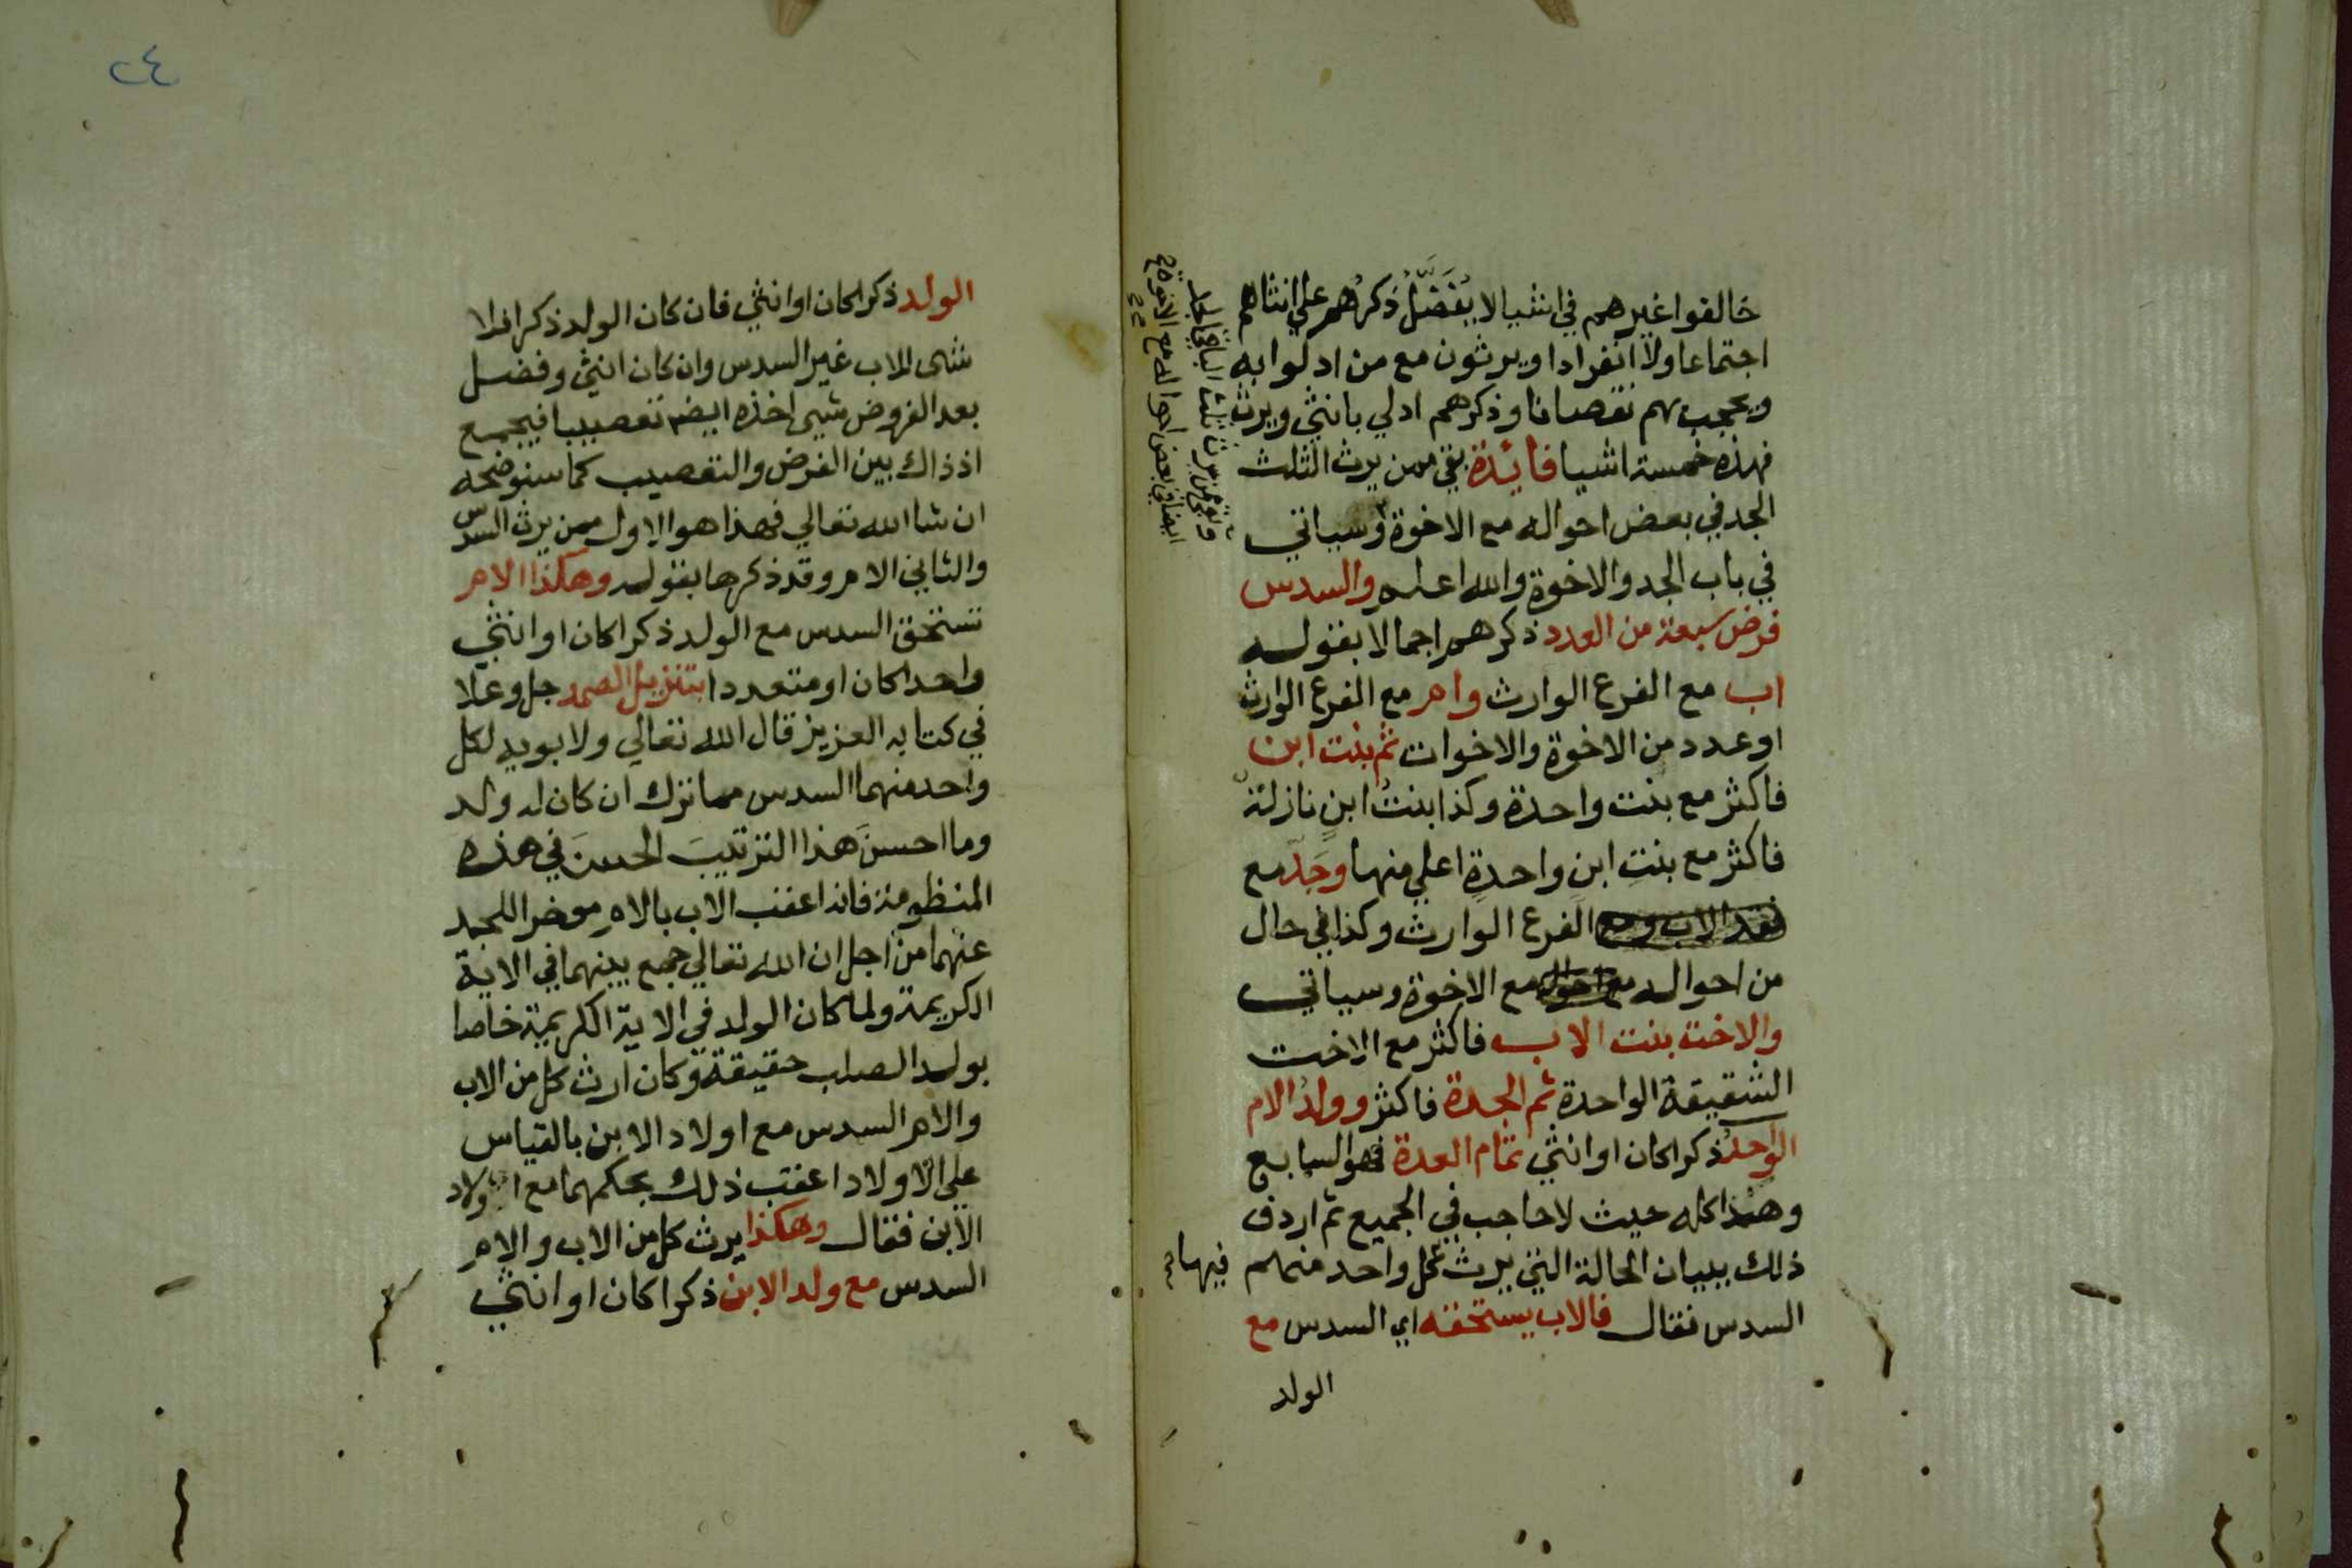 خالفوا غيرهم في اشيا لا يُفَضَّلُ ذكرُهم علي انثاهم
اجتماعا ولا انفرادا ويرثون مع من ادلوا به
ويحجب بهم نقصانا وذكرهم ادلي بانثي ويرث
فهذه خمسة اشيا فائدة بقي ممن يرث الثلث
الجد في بعض احواله مع الاخوة وسياتي
في باب الجد والاخوة والله اعلم والسدس
فرض سبعة من العدد ذكرهم اجمالا بقوله
اب مع الفرع الوارث وام مع الفرع الوارث
او عدد من الاخوة والاخوات ثم بنت ابن
فاكثر مع بنت واحدة وكذا بنتُ ابنٍ نازلةٌ
فاكثر مع بنتِ ابنٍ واحدةٍ اعلي منها وجَدّ مع
فقد الاب ومع الفرع الوارث وكذا في حال
من احواله مع الاخوة وسياتي
والاخت بنت الاب فاكثر مع الاخت
الشقيقة الواحدة ثم الجدة فاكثر وولدُ الام
الواحدُ ذكرا كان او انثي تمام العدة فهو السابع
وهذا كله حيث لا حاجب في الجميع ثم اردف
ذلك ببيان الحالة التي يرث كل واحد منهم فيها
السدس فقال فالاب يستحقه اي السدس مع
الولد
وبقي ممن يرث ثلث الباقي الجد
ايضا في بعض احواله مع الاخوة صح
٢٤
الولد ذكرا كان او انثي فان كان الولد ذكرا فلا
شي للاب غير السدس وان كان انثي وفضل
بعد الفروض شي اخذه ايضا تعصيبا فيجمع
اذ ذاك بين الفرض والتعصيب كما سنوضحه
ان شا الله تعالي فهذا هو الاول ممن يرث السدس
والثاني الام وقد ذكرها بقوله وهكذا الام
تستحق السدس مع الولد ذكرا كان او انثي
واحدا كان او متعددا بتنزيل الصمد جل وعلا
في كتابه العزيز قال الله تعالي ولابويه لكل
واحد منهما السدس مما ترك ان كان له ولد
وما احسنَ هذا الترتيبَ الحسنَ في هذه
المنظومة فانه اعقب الاب بالام موخرا للجد
عنهما من اجل ان الله تعالي جمع بينهما في الاية
الكريمة ولما كان الولد في الاية الكريمة خاصا
بولد الصلب حقيقة وكان ارث كل من الاب
والام السدس مع اولاد الابن بالقياس
علي الاولاد اعقب ذلك بحكمهما مع اولاد
الابن فقال وهكذا يرث كل من الاب والام
السدس مع ولد الابن ذكرا كان او انثي